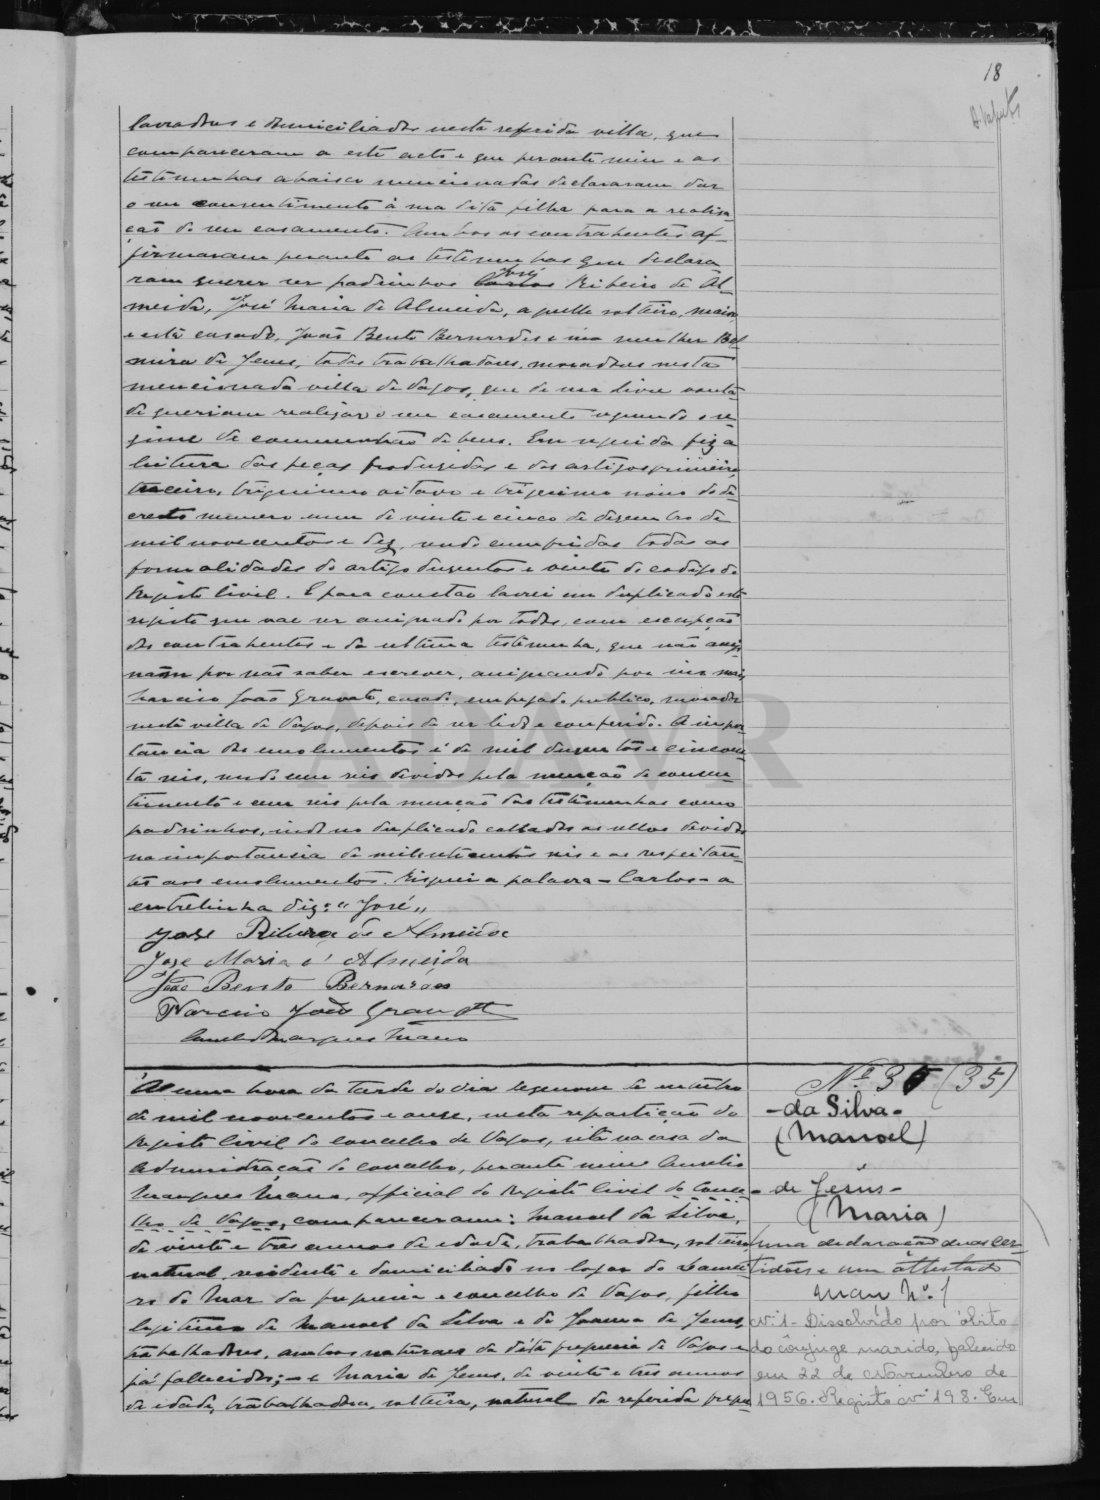 18
lavradores e domiciliados nesta referida villa, que
compareceram a este acto e que perante mim e as
testemunhas abaixo mencionadas declararam dar
o seu consentimento á sua dita filha para a realisa-
ção do seu casamento. Ambos os contrahentes af-
firmaram perante as testemunhas que declara
ram querer ser padrinhos Carlos José Ribeiro de Al-
meida, José Maria de Almeida, aquelle solteiro, maior
e este casado, João Bento Bernardes e sua mulher Bel
mira de Jesus, todos trabalhadores, moradores nesta
mencionada villa de Vagos, que de sua livre vonta
de queriam realizar o seu casamento segundo o re-
gime de communhão de bens. Em seguida fiz a
leitura das peças produzidas e dos artigos primeiro,
terceiro, trigesimo oitavo e trigesimo nono do de-
creto numero um de vinte e cinco de dezembro de
mil novecentos e dez, sendo cumpridas todas as
formalidades do artigo duzentos e vinte do codigo do
Registo Civil. E para constar lavrei em duplicado este
registo que vae ser assignado por todos, com excepção
dos contrahentes e da ultima testemunha, que não assi
nam por não saber escrever, assignando por
Narciso João Gravato, casado, empregado publico, morador
nesta villa de Vagos, depois de ser lido e conferido. A impor
tancia dos emolumentos é de mil duzentos e cincoen
ta reis, sendo cem reis devidos pela menção do consen-
timento e cem reis pela menção das testemunhas como
padrinhos, indo no duplicado collados os sellos devidos
na importancia de reis e os respeitan-
tes aos emolumentos. Risquei a palavra - Carlos - a
entrelinha diz: "José"
José Ribeiro de Almeida
Jose Maria d'Almeida
João Bento Bernardes
Narciso João Gravato
Aurelio Marques Mano
Nº 35 (35)
- da Silva -
(Manoel)
- de Jesus -
(Maria)
Uma declaração duas cer-
tidões e um attestado
Maço Nº 1
Nº 1 - Dissolvido por óbito
do cônjuge marido, falecido
em 22 de Novembro de
1956. Registo nº 198. Em
Á uma hora da tarde do dia dezenove de outubro
de mil novecentos e onze, nesta repartição do
Registo Civil do concelho de Vagos, sita na casa da
Administração do concelho, perante mim Aurelio
Marques Mano, official do Registo Civil do conce-
lho de Vagos, compareceram: Manoel da Silva,
de vinte e tres annos de edade, trabalhador, solteiro,
natural, residente e domiciliado no logar do
do Mar da freguesia e concelho de Vagos, filho
legitimo de Manoel da Silva e de Joanna de Jesus,
trabalhadores, ambos naturaes da dita freguesia de Vagos e
já fallecidos; - e Maria de Jesus, de vinte e tres annos
de edade, trabalhadora, solteira, natural da referida fregue
ADAVR